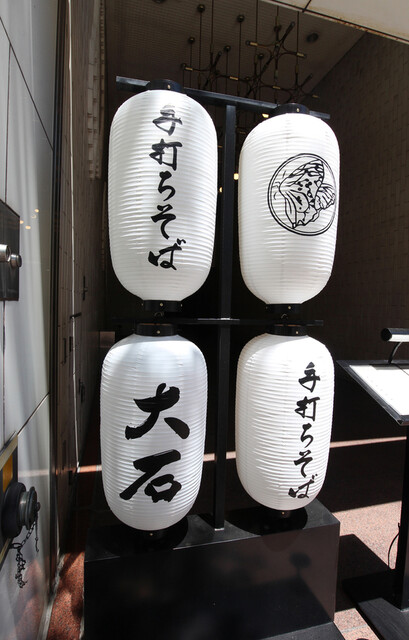 手打ちそば
大石
手打ちそば